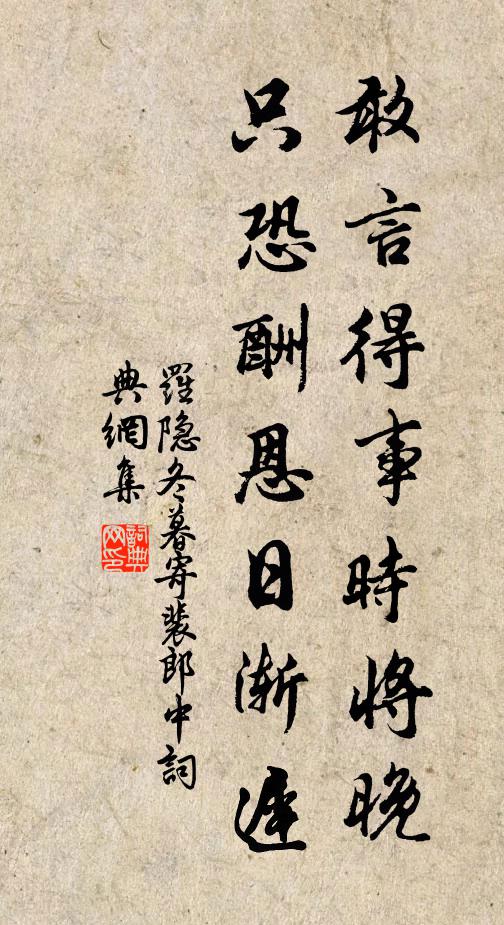 敢言得事時將晚
只恐酬恩日漸遲
羅隐冬暮寄裴郎中詞
典網集
詞典
网印